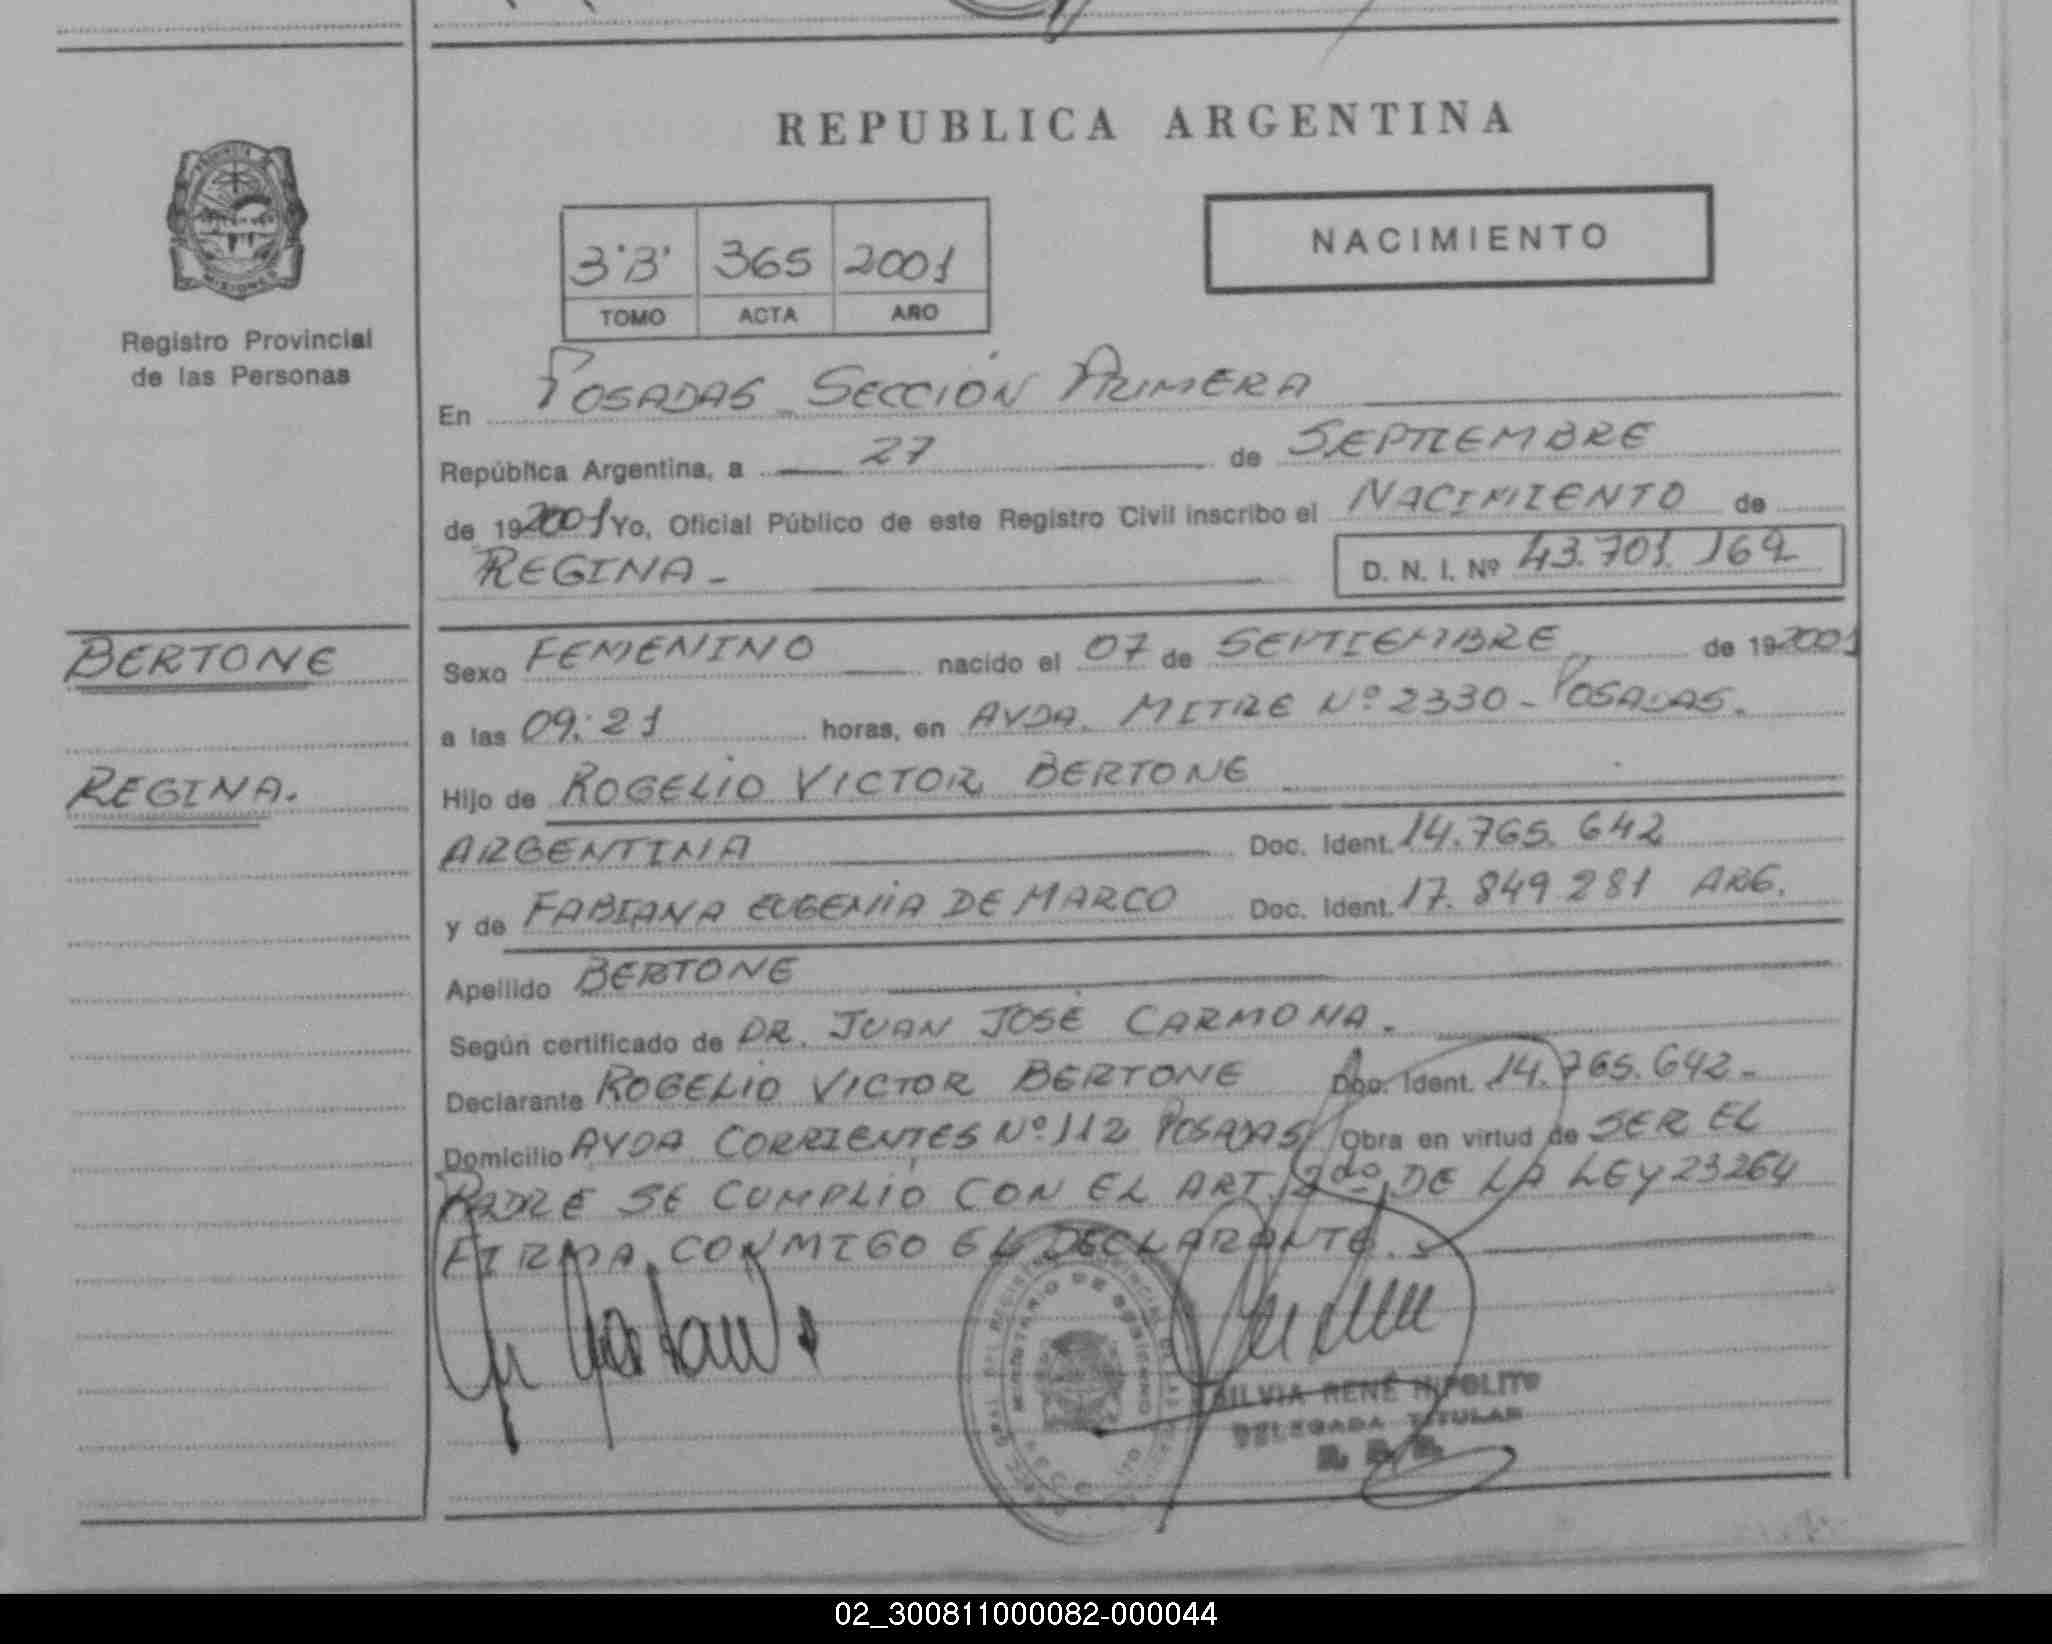 REPUBLICA ARGENTINA
NACIMIENTO
3 'B' 365 2001
TOMO ACTA AÑO
Registro Provincial
de las Personas
En POSADAS SECCIÓN PRIMERA
República Argentina, a 27 de SEPTIEMBRE
de 192001 Yo, Oficial Público de este Registro Civil inscribo el NACIMIENTO de
REGINA.- D. N. I. Nº 43.701.169
BERTONE
Sexo FEMENINO nacido el 07 de SEPTIEMBRE de 192001
a las 09:21 horas, en AVDA. MITRE Nº 2330 - POSADAS.
REGINA.
Hijo de ROGELIO VICTOR BERTONE
ARGENTINA Doc. Ident. 14.765.642
y de FABIANA EUGENIA DE MARCO Doc. Ident. 17.849.281 ARG.
Apellido BERTONE
Según certificado de DR. JUAN JOSÉ CARMONA.
Declarante ROGELIO VICTOR BERTONE Doc. Ident. 14.765.642.-
Domicilio AVDA CORRIENTES Nº 112 POSADAS Obra en virtud de SER EL
PADRE SE CUMPLIÓ CON EL ART. 2do DE LA LEY 23264
FIRMA CONMIGO EL DECLARANTE.
SILVIA RENÉ HIPOLITO
DELEGADA TITULAR
02_300811000082-000044